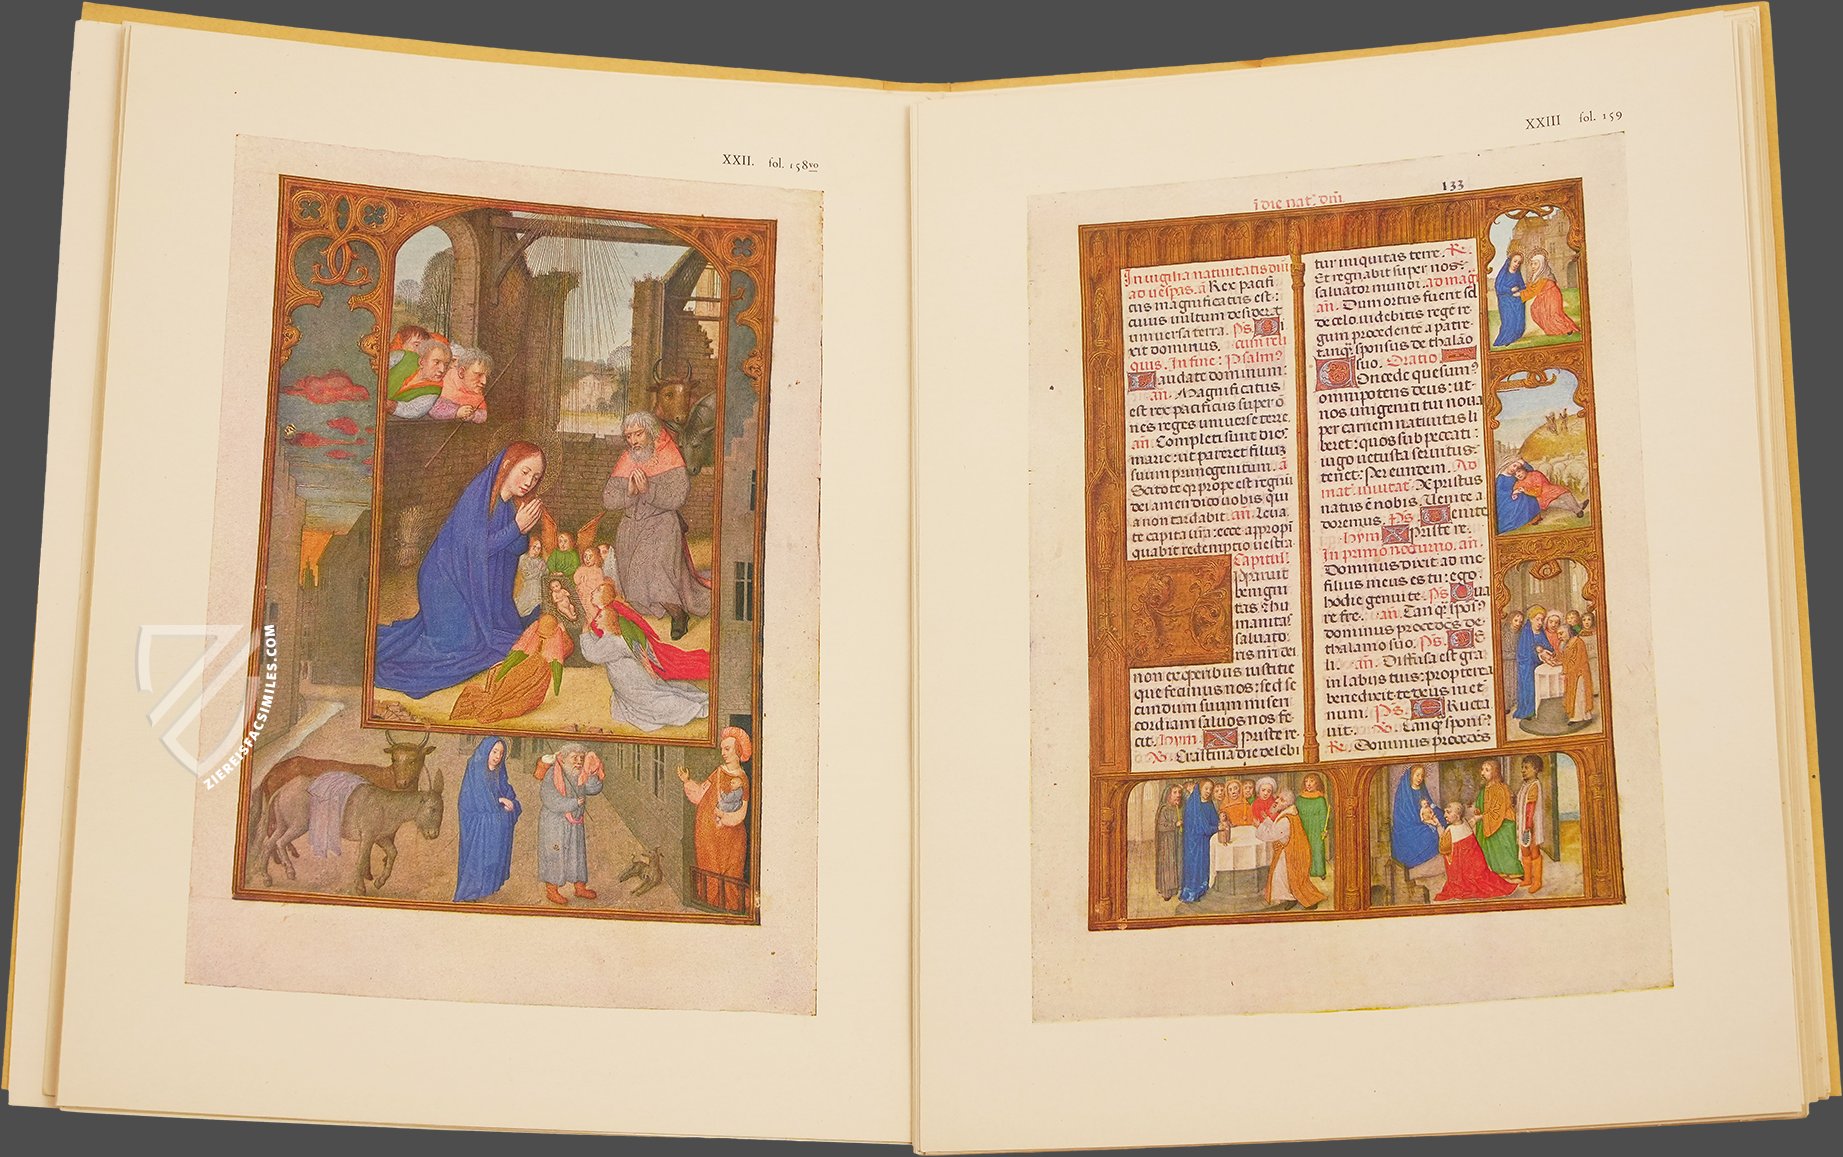 XXII. fol. 158vo
ZIEREISFACSIMILES.COM
XXIII fol. 159
133
ī die nat. dm̄.
In vigilia nativitatis dm̄
ad vesp̄as. ā Rex pacifi
cus magnificatus est:
cuius vultum desiderat
universa terra. Ps. Di
xit dominus. cum reli
quis. In fine: Psalm?
Laudate dominum:
an. Magnificatus
est rex pacificus super ō
nes reges universe terre.
añ. Completi sunt dies
marie: ut pareret filium
suum primogenitum. ā
Scitote q̄ prope est regnū
dei amen dico vobis qui
a non tardabit. an. Leva
te capita vr̄a: ecce appropī
quabit redemptio vestra
Capitul?
Pparuit
benigni
tas & hu
manitas
salvato
ris nr̄i dei
non ex operibus iusticie
que fecimus nos: sed se
cundum suum miseri
cordiam salvos nos fe
cit. hym. Xpriste re
Crastina die delebi
tur iniquitas terre. R.
Et regnabit super nos
salvator mundi. ad maḡ
an. Dum ortus fuerit sol
de celo. videbitis regē re
gum procedentē a patre
tanq̄ sponsus de thalāo
suo. Oratio.
Concede quesum?
omnipotens deus: ut
nos unigeniti tui nova
per carnem nativitas li
beret: quos sub peccati
iugo vetusta servitus
tenet: Per eundem. Ad
mat. invitat. Xpristus
natus ē nobis. Venite a
doremus. Ps. Venite
hym. Xpriste re.
In primo nocturno. an.
Dominus dixit ad me
filius meus es tu: ego
hodie genui te. Ps. Qua
re fre. an. Tanq̄ spos?
dominus procedēs de
thalamo suo. Ps. Ce
li. an. Diffusa est gra
in labijs tuis: propterea
benedixit te deus in et
num. Ps. Eructa
vit. Tanq̄ spons?
R. Dominus procedēs